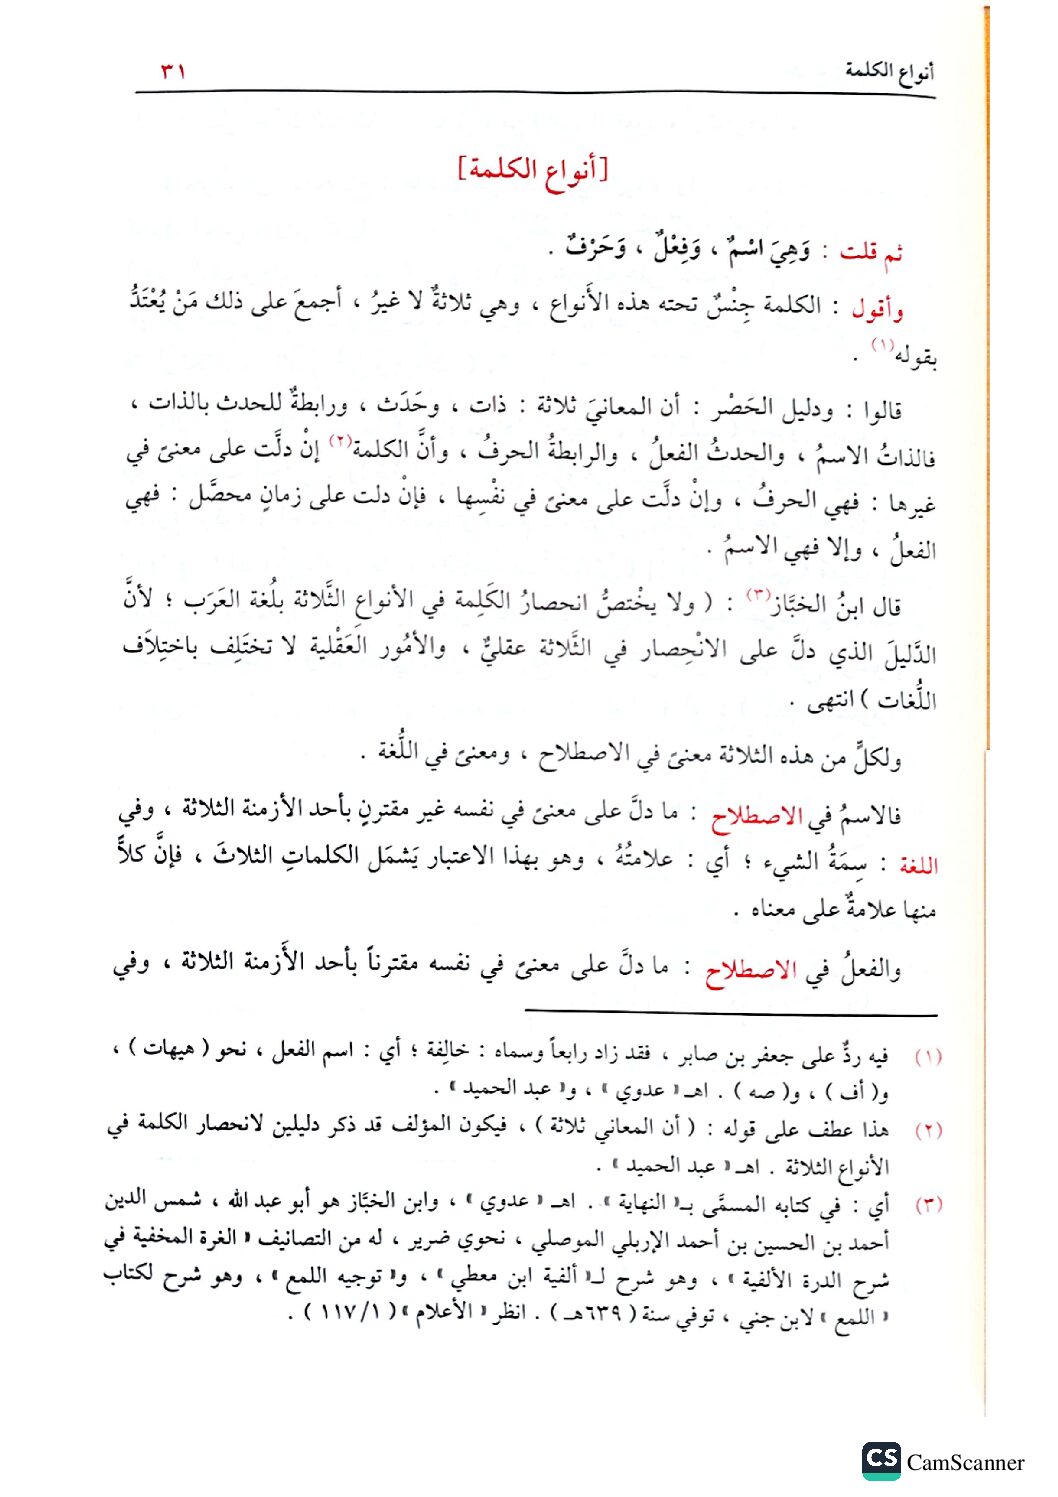 أنواع الكلمة
٣١
[أنواع الكلمة]
ثم قلت : وَهِيَ اسْمٌ ، وَفِعْلٌ ، وَحَرْفٌ .
وأقول : الكلمة جِنْسٌ تحته هذه الأَنواع ، وهي ثلاثةٌ لا غيرُ ، أجمعَ على ذلك مَنْ يُعْتَدُّ
بقوله(١) .
قالوا : ودليل الحَصْر : أن المعانيَ ثلاثة : ذات ، وحَدَث ، ورابطةٌ للحدث بالذات ،
فالذاتُ الاسمُ ، والحدثُ الفعلُ ، والرابطةُ الحرفُ ، وأنَّ الكلمة(٢) إنْ دلَّت على معنىً في
غيرها : فهي الحرفُ ، وإنْ دلَّت على معنىً في نفْسِها ، فإنْ دلت على زمانٍ محصَّل : فهي
الفعلُ ، وإلا فهي الاسمُ .
قال ابنُ الخبَّاز(٣) : ( ولا يخْتصُّ انحصارُ الكَلِمة في الأنواعِ الثَّلاثة بلُغة العَرَب ؛ لأنَّ
الدَّليلَ الذي دلَّ على الانْحِصار في الثَّلاثة عقليٌّ ، والأمُور العَقْلية لا تختَلِف باختِلاَف
اللُّغات ) انتهى .
ولكلٍّ من هذه الثلاثة معنىً في الاصطلاح ، ومعنىً في اللُّغة .
فالاسمُ في الاصطلاح : ما دلَّ على معنىً في نفسه غير مقترنٍ بأحد الأزمنة الثلاثة ، وفي
اللغة : سِمَةُ الشيء ؛ أي : علامتُهُ ، وهو بهذا الاعتبار يَشمَل الكلماتِ الثلاثَ ، فإنَّ كلاًّ
منها علامةٌ على معناه .
والفعلُ في الاصطلاح : ما دلَّ على معنىً في نفسه مقترناً بأحد الأَزمنة الثلاثة ، وفي
(١) فيه ردٌّ على جعفر بن صابر ، فقد زاد رابعاً وسماه : خالِفة ؛ أي : اسم الفعل ، نحو ( هيهات ) ،
و( أف ) ، و( صه ) . اهـ « عدوي » ، و« عبد الحميد » .
(٢) هذا عطف على قوله : ( أن المعاني ثلاثة ) ، فيكون المؤلف قد ذكر دليلين لانحصار الكلمة في
الأنواع الثلاثة . اهـ « عبد الحميد » .
(٣) أي : في كتابه المسمَّى بـ« النهاية » . اهـ « عدوي » ، وابن الخبَّاز هو أبو عبد الله ، شمس الدين
أحمد بن الحسين بن أحمد الإربلي الموصلي ، نحوي ضرير ، له من التصانيف « الغرة المخفية في
شرح الدرة الألفية » ، وهو شرح لـ« ألفية ابن معطي » ، و« توجيه اللمع » ، وهو شرح لكتاب
« اللمع » لابن جني ، توفي سنة ( ٦٣٩هـ ) . انظر « الأعلام » ( ١١٧/١ ) .
CS CamScanner